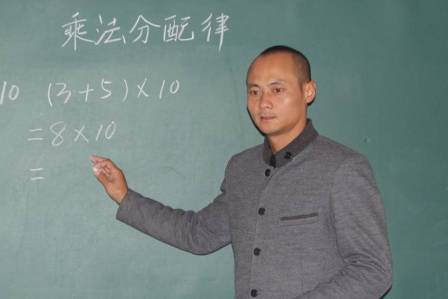 乘法分配律
10 (3+5)×10
=8×10
=